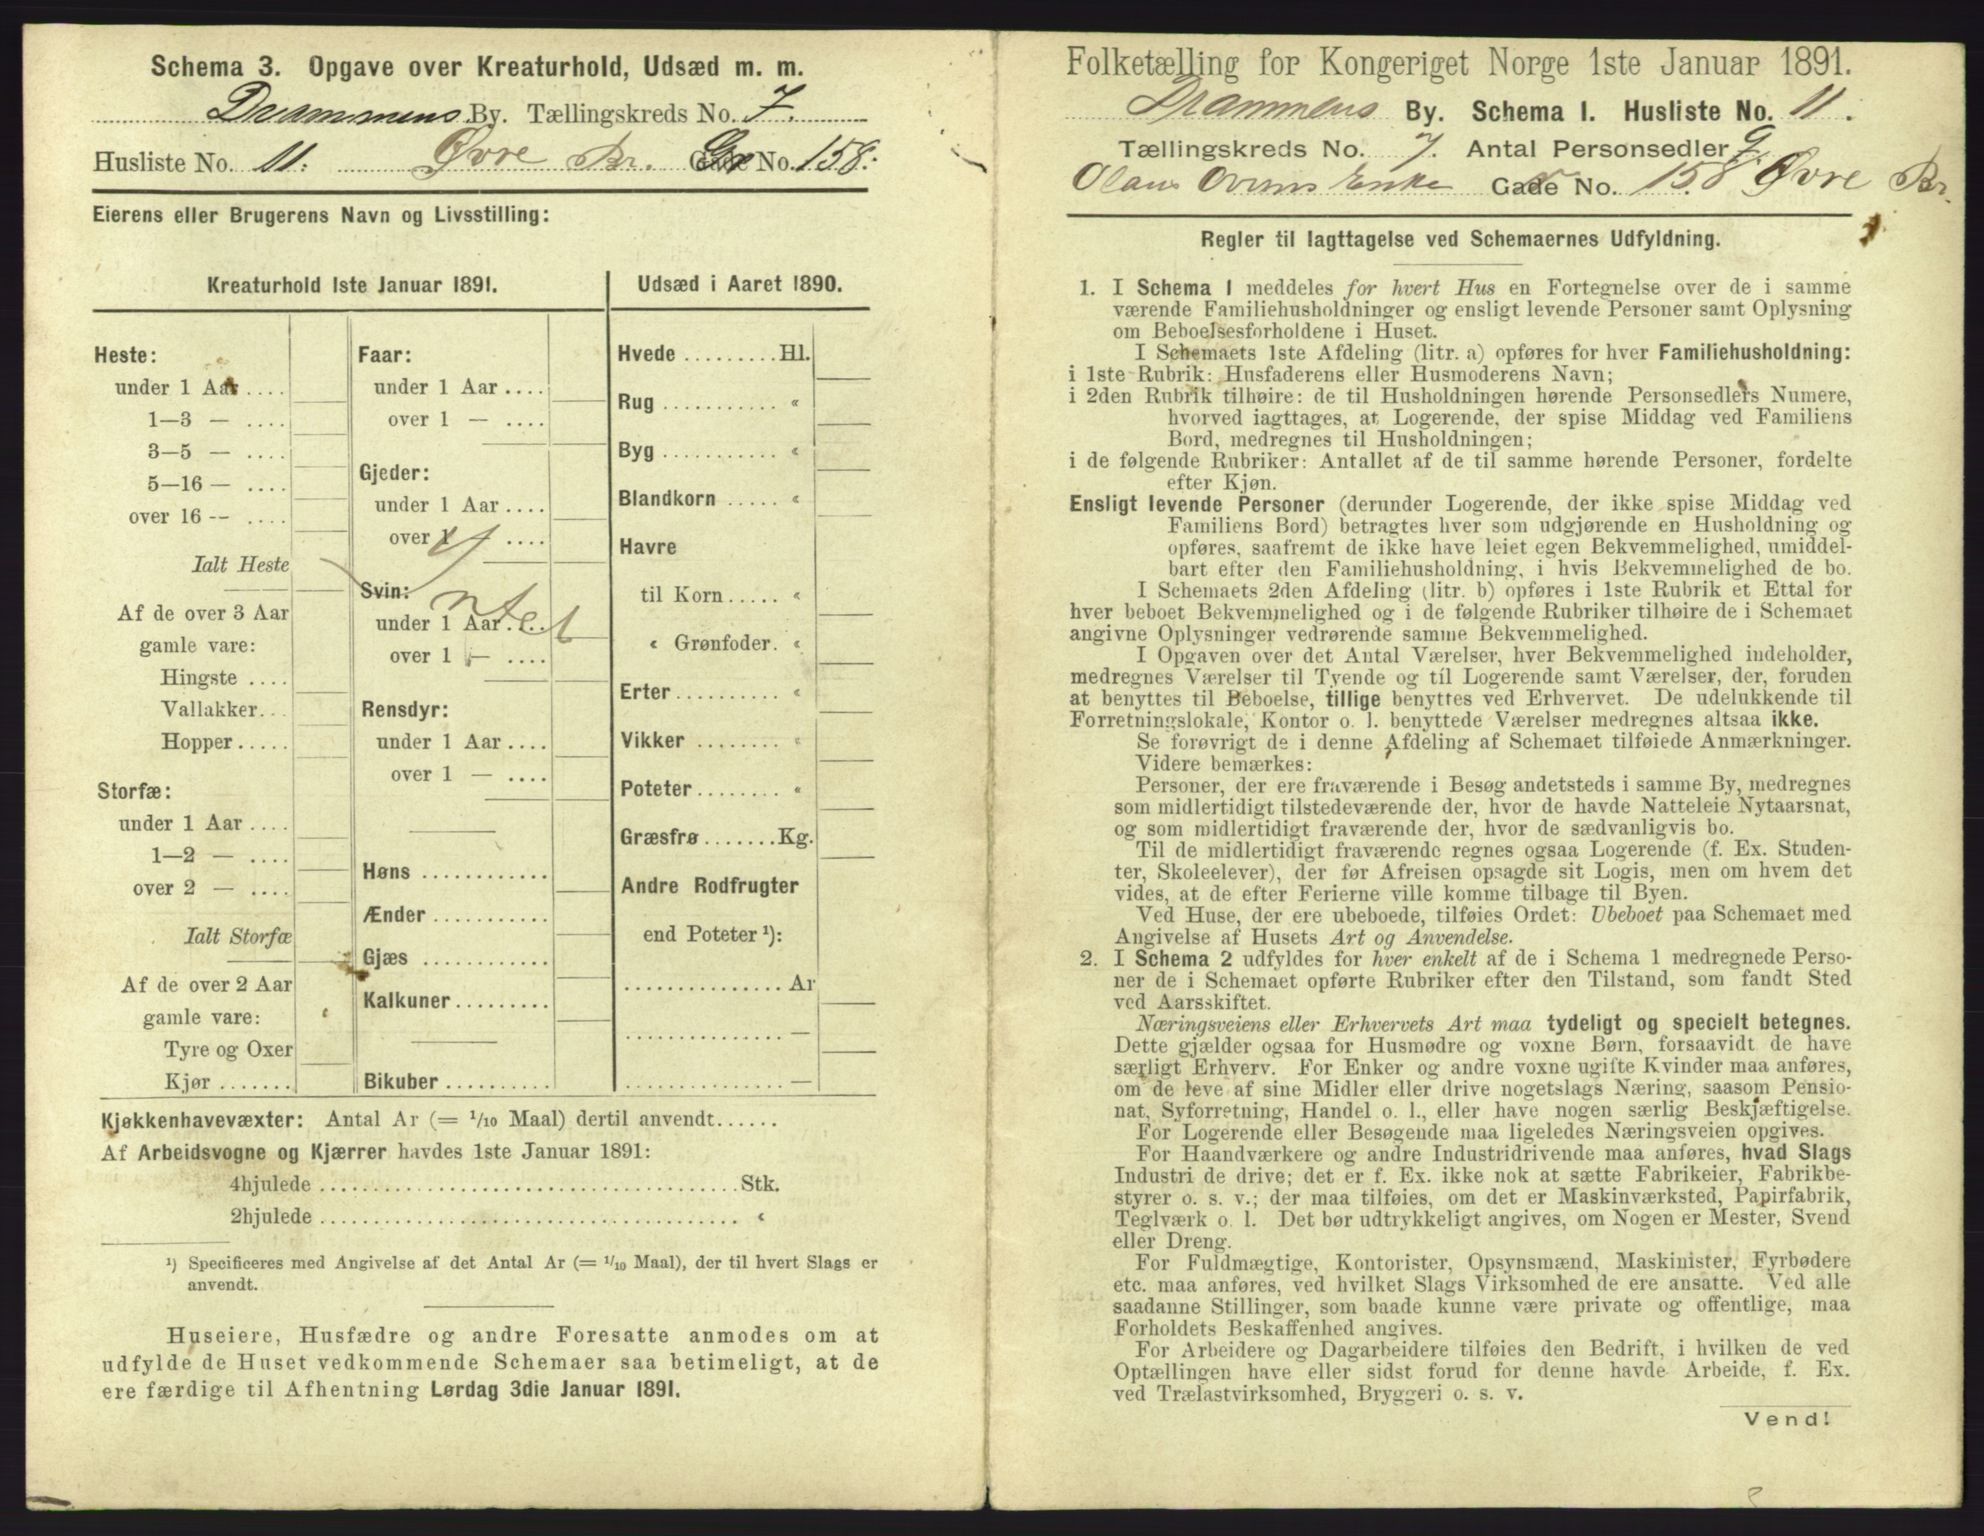 Schema 3. Opgave over Kreaturhold, Udsæd m. m.
Drammens By. Tællingskreds No. 7.
Husliste No. 11: Øvre Br. Gade No. 158:
Eierens eller Brugerens Navn og Livsstilling:
Kreaturhold 1ste Januar 1891.
Heste:
under 1 Aar ....
1—3 — ....
3—5 — ....
5—16 — ....
over 16 — ....
Ialt Heste
Af de over 3 Aar
gamle vare:
Hingste ....
Vallakker...
Hopper.....
Storfæ:
under 1 Aar ....
1—2 — ....
over 2 — ....
Ialt Storfæ
Af de over 2 Aar
gamle vare:
Tyre og Oxer
Kjør .......
Faar:
under 1 Aar ....
over 1 — ....
Gjeder:
under 1 Aar ....
over 1 — ....
Svin:
under 1 Aar ....
over 1 — ....
Rensdyr:
under 1 Aar ....
over 1 — ....
Høns ............
Ænder ...........
Gjæs ............
Kalkuner.........
Bikuber ..........
Udsæd i Aaret 1890.
Hvede .........Hl.
Rug ........... «
Byg ........... «
Blandkorn ..... «
Havre
til Korn..... «
« Grønfoder. «
Erter.......... «
Vikker ........ «
Poteter........ «
Græsfrø.......Kg.
Andre Rodfrugter
end Poteter ¹):
............... Ar
............... —
............... —
Kjøkkenhavevæxter: Antal Ar (= 1/10 Maal) dertil anvendt......
Af Arbeidsvogne og Kjærrer havdes 1ste Januar 1891:
4hjulede ........................................Stk.
2hjulede ........................................ «
¹) Specificeres med Angivelse af det Antal Ar (= 1/10 Maal), der til hvert Slags er
anvendt.
Huseiere, Husfædre og andre Foresatte anmodes om at
udfylde de Huset vedkommende Schemaer saa betimeligt, at de
ere færdige til Afhentning Lørdag 3die Januar 1891.
Folketælling for Kongeriget Norge 1ste Januar 1891.
Drammens By. Schema I. Husliste No. 11.
Tællingskreds No. 7. Antal Personsedler 9.
Olaus Enke Gade No. 158 Øvre Br
Regler til Iagttagelse ved Schemaernes Udfyldning.
1. I Schema I meddeles for hvert Hus en Fortegnelse over de i samme
værende Familiehusholdninger og ensligt levende Personer samt Oplysning
om Beboelsesforholdene i Huset.
I Schemaets 1ste Afdeling (litr. a) opføres for hver Familiehusholdning:
i 1ste Rubrik: Husfaderens eller Husmoderens Navn;
i 2den Rubrik tilhøire: de til Husholdningen hørende Personsedlers Numere,
hvorved iagttages, at Logerende, der spise Middag ved Familiens
Bord, medregnes til Husholdningen;
i de følgende Rubriker: Antallet af de til samme hørende Personer, fordelte
efter Kjøn.
Ensligt levende Personer (derunder Logerende, der ikke spise Middag ved
Familiens Bord) betragtes hver som udgjørende en Husholdning og
opføres, saafremt de ikke have leiet egen Bekvemmelighed, umiddel-
bart efter den Familiehusholdning, i hvis Bekvemmelighed de bo.
I Schemaets 2den Afdeling (litr. b) opføres i 1ste Rubrik et Ettal for
hver beboet Bekvemmelighed og i de følgende Rubriker tilhøire de i Schemaet
angivne Oplysninger vedrørende samme Bekvemmelighed.
I Opgaven over det Antal Værelser, hver Bekvemmelighed indeholder,
medregnes Værelser til Tyende og til Logerende samt Værelser, der, foruden
at benyttes til Beboelse, tillige benyttes ved Erhvervet. De udelukkende til
Forretningslokale, Kontor o. l. benyttede Værelser medregnes altsaa ikke.
Se forøvrigt de i denne Afdeling af Schemaet tilføiede Anmærkninger.
Videre bemærkes:
Personer, der ere fraværende i Besøg andetsteds i samme By, medregnes
som midlertidigt tilstedeværende der, hvor de havde Natteleie Nytaarsnat,
og som midlertidigt fraværende der, hvor de sædvanligvis bo.
Til de midlertidigt fraværende regnes ogsaa Logerende (f. Ex. Studen-
ter, Skoleelever), der før Afreisen opsagde sit Logis, men om hvem det
vides, at de efter Ferierne ville komme tilbage til Byen.
Ved Huse, der ere ubeboede, tilføies Ordet: Ubeboet paa Schemaet med
Angivelse af Husets Art og Anvendelse.
2. I Schema 2 udfyldes for hver enkelt af de i Schema 1 medregnede Perso-
ner de i Schemaet opførte Rubriker efter den Tilstand, som fandt Sted
ved Aarsskiftet.
Næringsveiens eller Erhvervets Art maa tydeligt og specielt betegnes.
Dette gjælder ogsaa for Husmødre og voxne Børn, forsaavidt de have
særligt Erhverv. For Enker og andre voxne ugifte Kvinder maa anføres,
om de leve af sine Midler eller drive nogetslags Næring, saasom Pensio-
nat, Syforretning, Handel o. l., eller have nogen særlig Beskjæftigelse.
For Logerende eller Besøgende maa ligeledes Næringsveien opgives.
For Haandværkere og andre Industridrivende maa anføres, hvad Slags
Industri de drive; det er f. Ex. ikke nok at sætte Fabrikeier, Fabrikbe-
styrer o. s. v.; der maa tilføies, om det er Maskinværksted, Papirfabrik,
Teglværk o. l. Det bør udtrykkeligt angives, om Nogen er Mester, Svend
eller Dreng.
For Fuldmægtige, Kontorister, Opsynsmænd, Maskinister, Fyrbødere
etc. maa anføres, ved hvilket Slags Virksomhed de ere ansatte. Ved alle
saadanne Stillinger, som baade kunne være private og offentlige, maa
Forholdets Beskaffenhed angives.
For Arbeidere og Dagarbeidere tilføies den Bedrift, i hvilken de ved
Optællingen have eller sidst forud for denne havde Arbeide, f. Ex.
ved Trælastvirksomhed, Bryggeri o. s. v.
Vend!